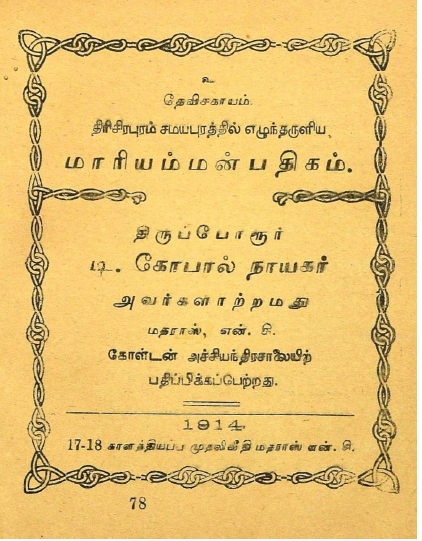 உ
தேவிசகாயம்.
திரிசிரபுரம் சமயபுரத்தில் எழுந்தருளிய,
மாரியம்மன்பதிகம்.
திருப்போரூர்
டி. கோபால் நாயகர்
அவர்களாற்றமது
மதராஸ், என். சி.
கோள்டன் அச்சியந்திரசாலையிற்
பதிப்பிக்கப்பெற்றது.
1914.
17-18 காளத்தியப்ப முதலிவீதி மதராஸ் என். சி.
78